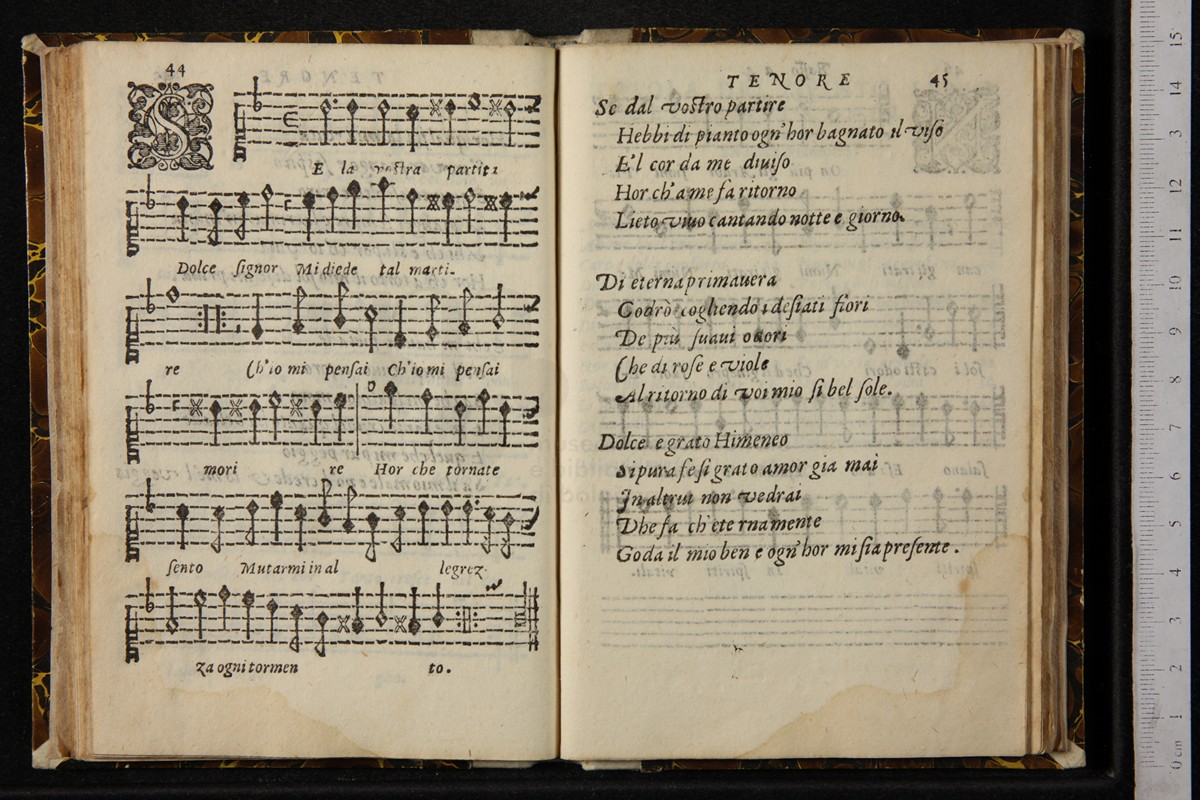 44
S
E la vostra partita
Dolce signor Mi diede tal marti-
re Ch'io mi pensai Ch'io mi pensai
mori re Hor che tornate
sento Mutarmi in al legrez-
za ogni tormen to.
TENORE 45
Se dal vostro partire
Hebbi di pianto ogn'hor bagnato il viso
E'l cor da me diuiso
Hor ch'a me fà ritorno
Lieto viuo cantando notte e giorno.
Di eterna primauera
Godrò cogliendo i desiati fiori
De più suaui odori
Che di rose e viole
Al ritorno di voi mio si bel sole.
Dolce e grato Himeneo
Si pura fe si grato amor gia mai
In altrui non vedrai
Dhe fa ch'eternamente
Goda il mio ben e ogn'hor mi sia presente.
0 cm 1 2 3 4 5 6 7 8 9 10 11 12 13 14 15